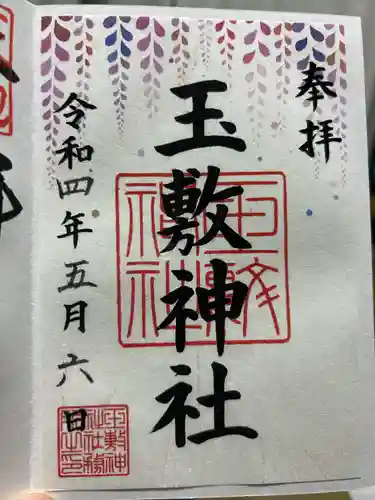 奉拝
玉敷神社
令和四年五月六日
玉敷神社
玉敷神社務所之印